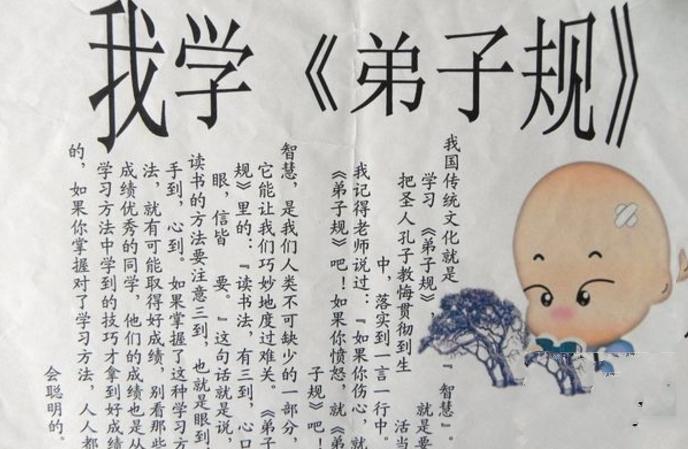 我学《弟子规》
我国传统文化就是『智慧』。
学习《弟子规》，就是要
把圣人孔子教悔贯彻到生活当
中，落实到一言一行中。
我记得老师说过：『如果你伤心，就
《弟子规》吧！如果你愤怒，就《弟
子规》吧！
智慧，是我们人类不可缺少的一部分，
它能让我们巧妙地度过难关。《弟子
规》里的：『读书法，有三到，心口
眼，信皆要。』这句话就是说，
读书的方法要注意三到，也就是眼到
手到，心到。如果掌握了这种学习方
法，就有可能取得好成绩，别看那些
成绩优秀的同学，他们的成绩也是从
学习方法中学到的技巧才拿到好成绩
的，如果你掌握对了学习方法，人人都
会聪明的。